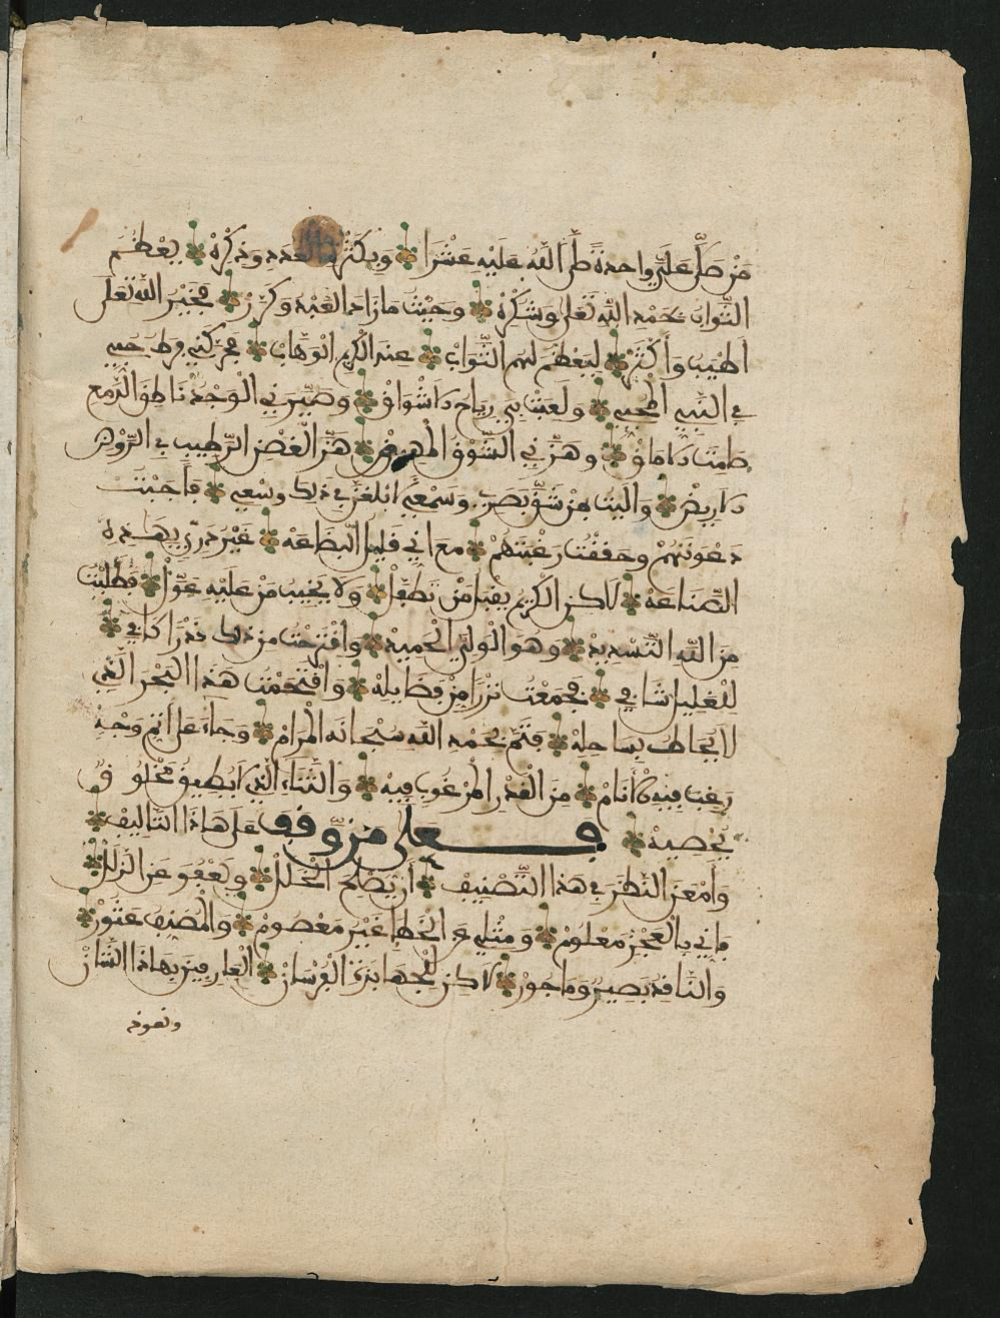 مَنْ صَلَّى عَلَيَّ وَاحِدَةً صَلَّى اللَّهُ عَلَيْهِ عَشْرَا وبكثرة العدد وذكره يعظم
الثواب بحمد الله تعلى وشكره وحيث ما زاد العبد وكرر فخير الله تعلى
أطيب وأكثر ليعظم لهم الثواب عند الكريم الوهاب فحركني فرط حبي
في النبي المحبي ولعبت بي رياح الاشواق وصيرني الوجد ناطق الدمع
صامت الاماق وهزني الشوق هز الغصن الرطيب في الروض
الاريض واليت من شق بصري وسمعي ابلغ في ذلك وسعي فأجبت
دعوتهم وحققت رغبتهم مع اني قليل البضاعه غير دري بهذه
الصناعه لاكن الكريم يقبل من تطفل ولا يخيب من عليه عول فطلبت
من الله التسديد وهو الولي الحميد واقترحت من ذلك قدرا كافي
للغليل شافي فجمعت نزرا من فضايله واقتحمت هذا البحر الذي
لا يحاط بساحله فتم بحمد الله سبحانه المرام وجاء على اتم وجه
رغب فيه الانام من القدر المرغوب فيه والثناء الذي لا يطيق مخلوق
يحصيه فعلى من وقف على هاذا التاليف
وأمعن النظر في هذا التصنيف أن يصلح الخلل ويعفو عن الزلل
فاني بالعجز معلوم ومثلي عن الخطإ غير معصوم والمصنف عثور
والناقد بصير وماجور لاكن للجهابذة الفرسان العارفين بهاذا الشان
ونعوذ